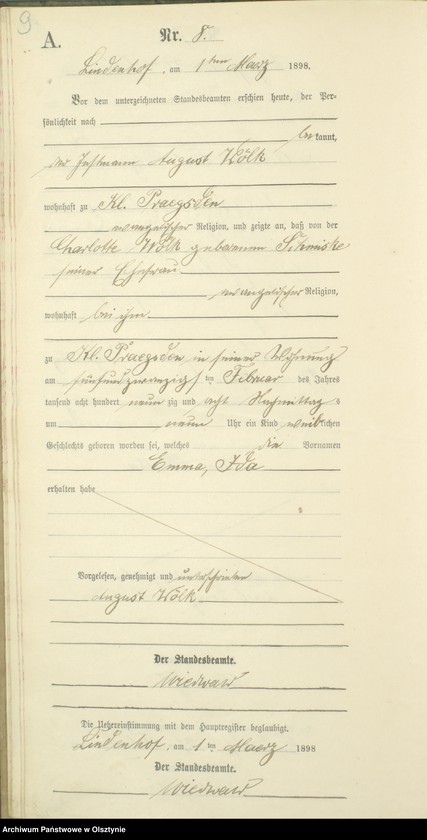 9
A.
Nr. 8.
Lindenhof, am 1ten Maerz 1898.
Vor dem unterzeichneten Standesbeamten erschien heute, der Per-
sönlichkeit nach
bekannt,
der August Wölk
wohnhaft zu Kl. Praegsden
evangelischer Religion, und zeigte an, daß von der
Charlotte Wölk geborenen
seiner Ehefrau
evangelischer Religion,
wohnhaft bei ihm
zu Kl. Praegsden in seiner Wohnung
am fünfundzwanzigsten Februar des Jahres
tausend acht hundert neun zig und acht Nachmittags
um neun Uhr ein Kind weiblichen
Geschlechts geboren worden sei, welches die Vornamen
Emma, Ida
erhalten habe
Vorgelesen, genehmigt und unterschrieben
August Wölk
Der Standesbeamte.
Die Uebereinstimmung mit dem Hauptregister beglaubigt.
Lindenhof, am 1ten Maerz 1898
Der Standesbeamte.
Archiwum Państwowe w Olsztynie